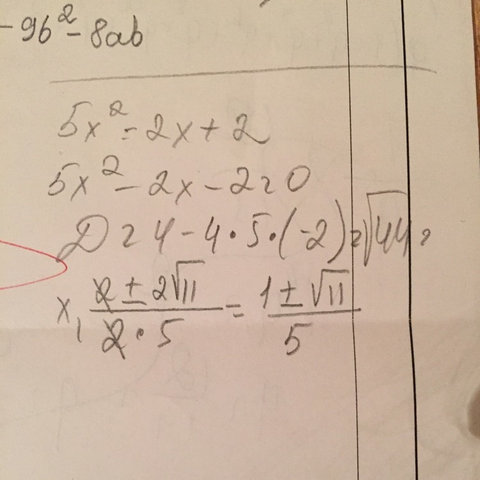 -9b²-8ab
5x²=2x+2
5x²-2x-2=0
D=4-4·5·(-2)=√44=
x₁ 2±2√11/2·5 = 1±√11/5